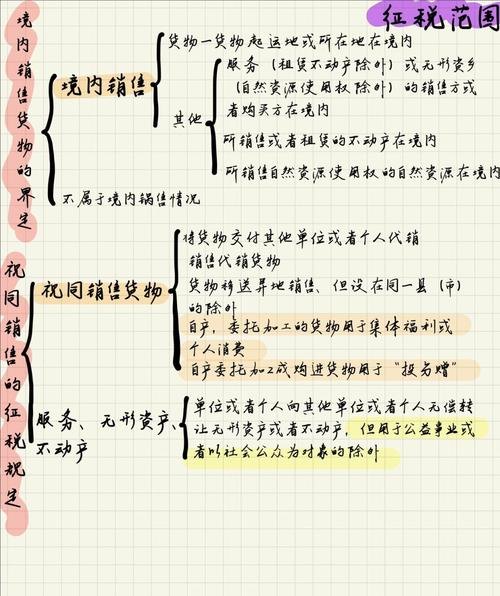 征税范围
境内销售货物的界定
境内销售
货物—货物起运地或所在地在境内
其他
服务（租赁不动产除外）或无形资产
（自然资源使用权除外）的销售方或
者购买方在境内
所销售或者租赁的不动产在境内
所销售自然资源使用权的自然资源在境内
不属于境内销售情况
视同销售的征税规定
视同销售货物
将货物交付其他单位或者个人代销
销售代销货物
货物移送异地销售、但设在同一县（市）
的除外
自产，委托加工的货物用于集体福利或
个人消费
自产委托加工或购进货物用于“投分赠”
服务、无形资产、
不动产
单位或者个人向其他单位或者个人无偿转
让无形资产或者不动产，但用于公益事业或
者以社会公众为对象的除外